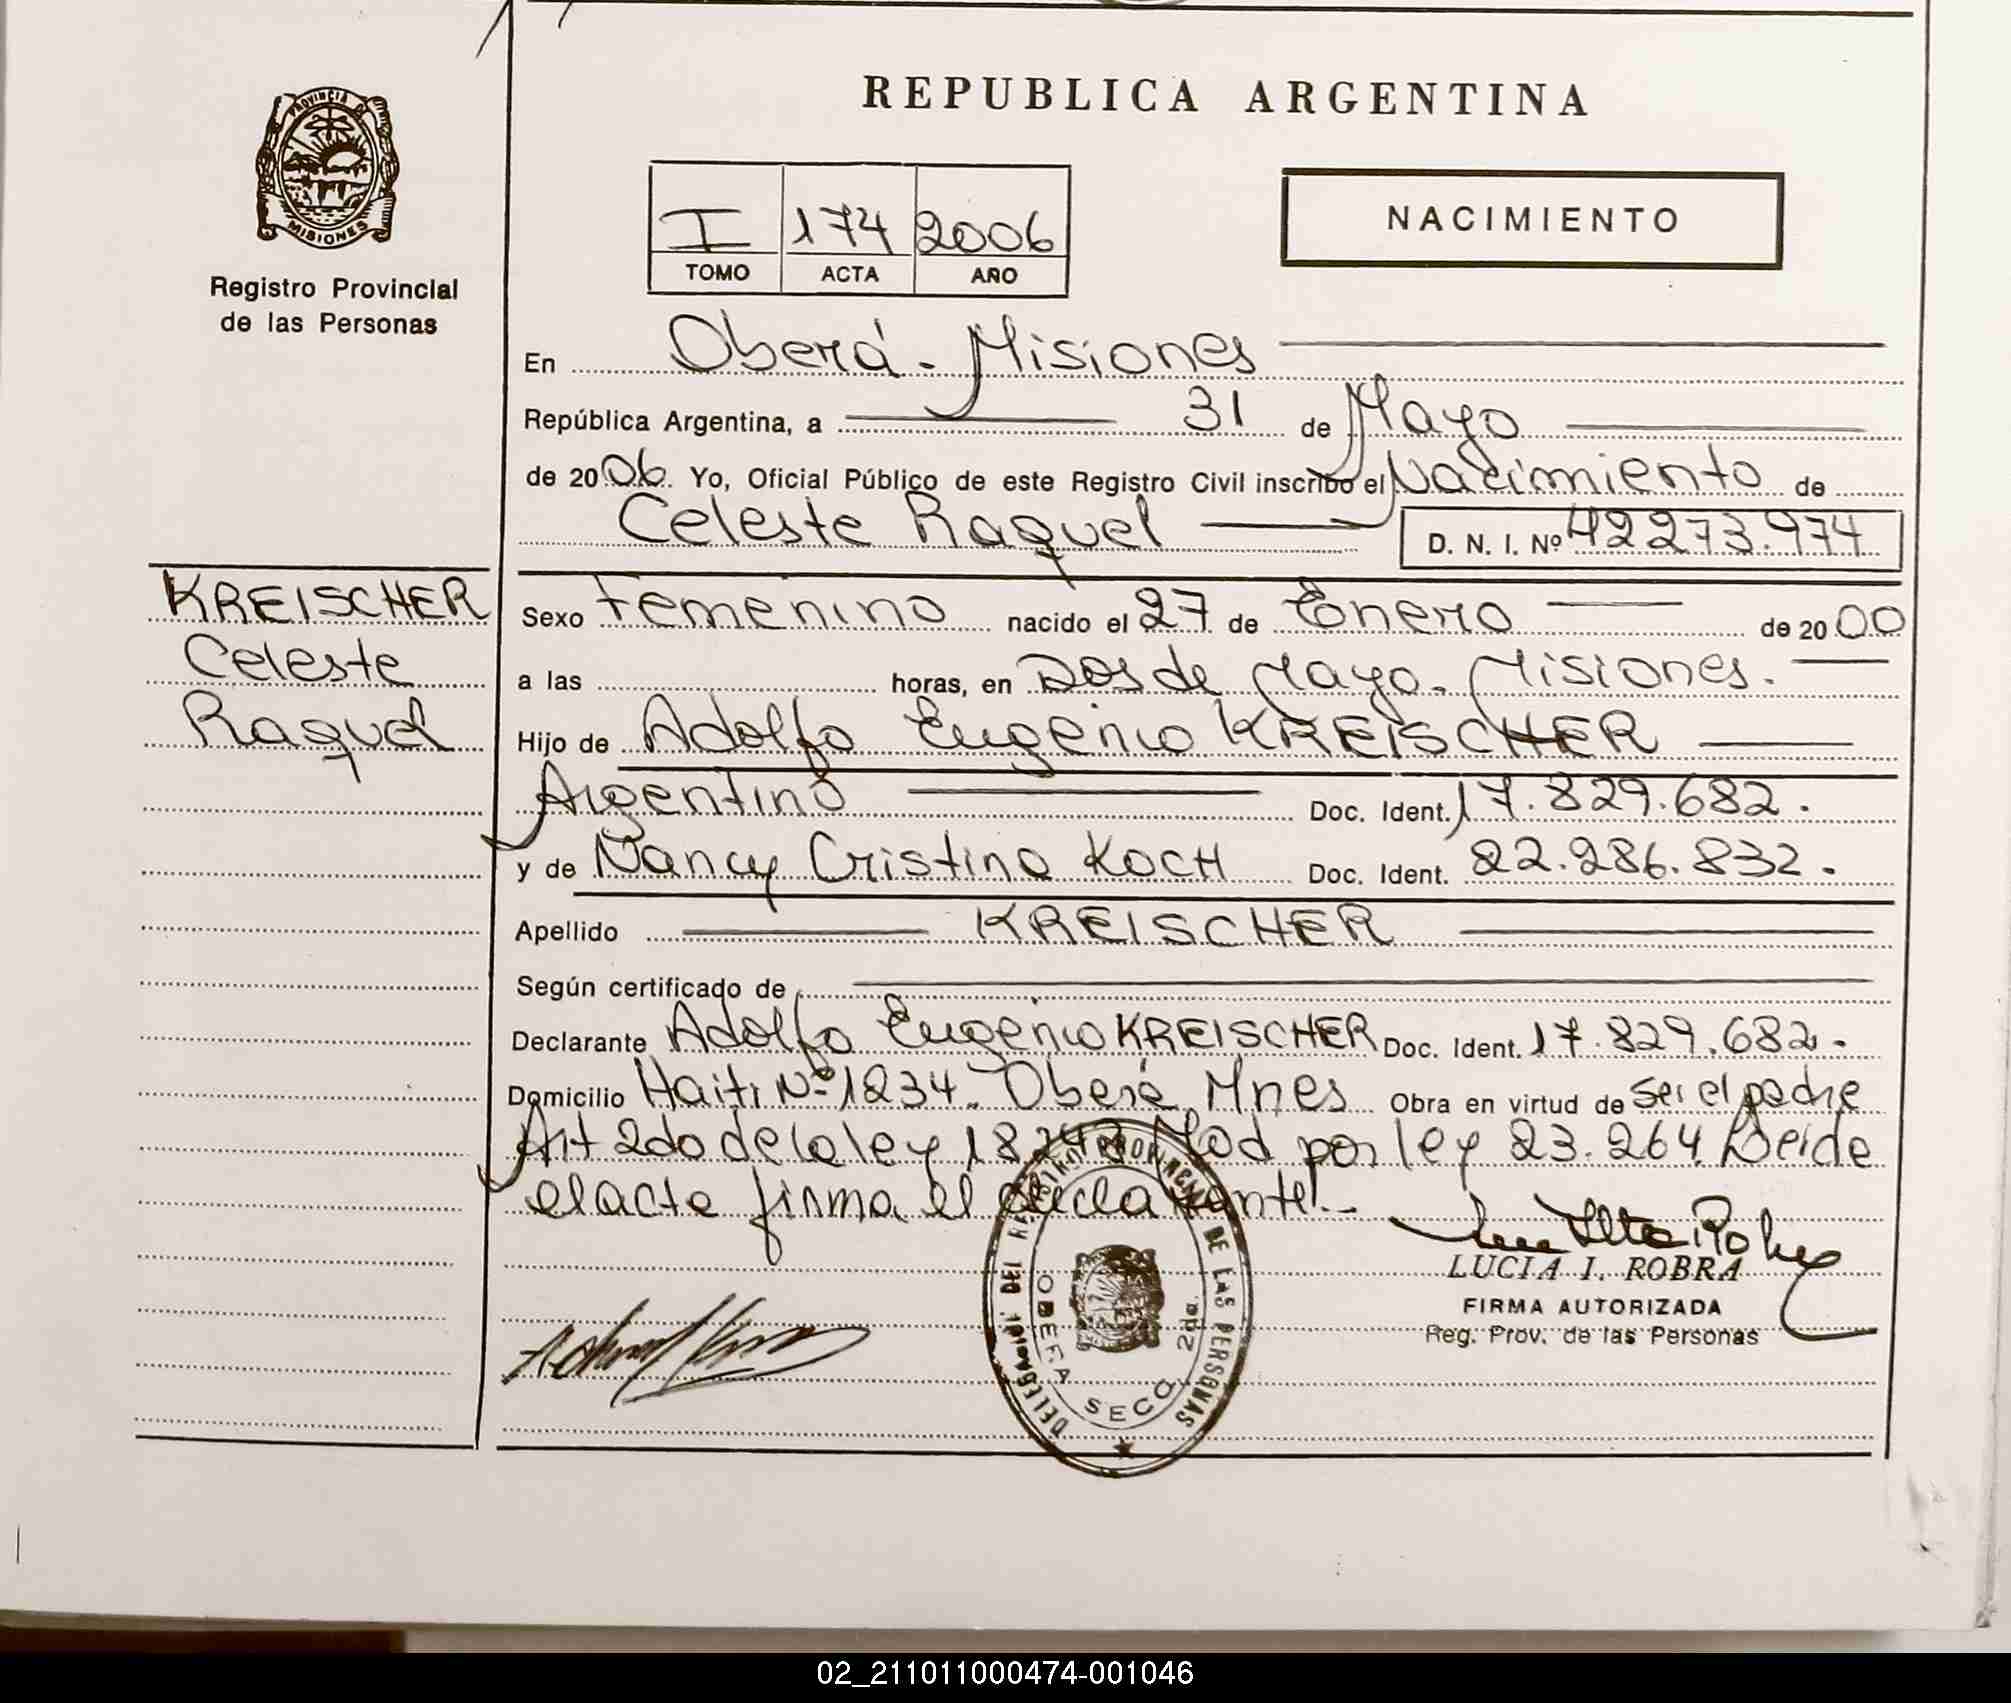 REPUBLICA ARGENTINA
PROVINCIA DE
MISIONES
Registro Provincial
de las Personas
I 174 2006
TOMO ACTA AÑO
NACIMIENTO
En Oberá - Misiones
República Argentina, a 31 de Mayo
de 2006 Yo, Oficial Público de este Registro Civil inscribo el Nacimiento de
Celeste Raquel D. N. I. Nº 42273.974
KREISCHER
Celeste
Raquel
Sexo Femenino nacido el 27 de Enero de 2000
a las horas, en Dos de Mayo. Misiones.
Hijo de Adolfo Eugenio KREISCHER
Argentino Doc. Ident. 17.829.682.
y de Nancy Cristina KOCH Doc. Ident. 22.286.832.
Apellido KREISCHER
Según certificado de
Declarante Adolfo Eugenio KREISCHER Doc. Ident. 17.829.682.
Domicilio Haiti Nº 1234. Oberá, Mnes Obra en virtud de ser el padre
Art 2do de la ley 18.248 Mod por ley 23.264. Leida
el acta firma el declarante.-
LUCIA I. ROBRA
FIRMA AUTORIZADA
Reg. Prov. de las Personas
DELEGACION DEL REGISTRO PROVINCIAL DE LAS PERSONAS
OBERA SECC. 2da.
02_211011000474-001046